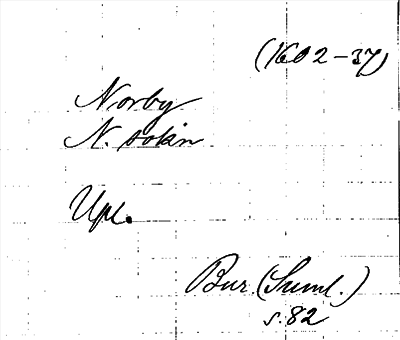 (1602-37)
Norby
N. sokn
Upl.
Bur. (Suml.)
s. 82